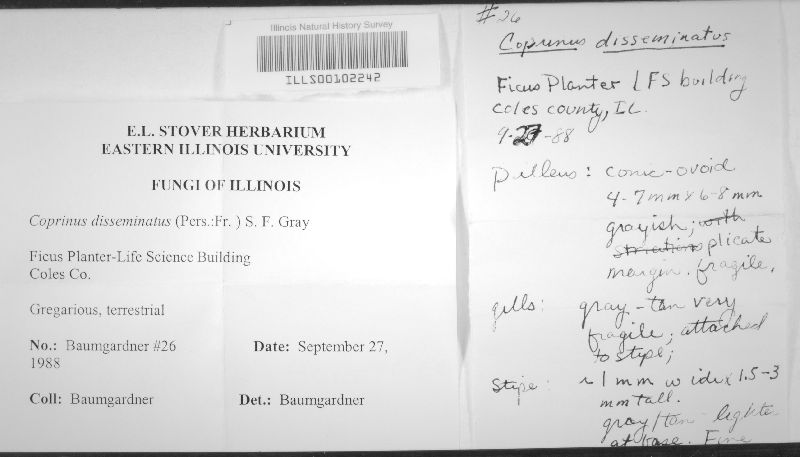 Illinois Natural History Survey
ILLS00102242
E.L. STOVER HERBARIUM
EASTERN ILLINOIS UNIVERSITY
FUNGI OF ILLINOIS
Coprinus disseminatus (Pers.:Fr. ) S. F. Gray
Ficus Planter-Life Science Building
Coles Co.
Gregarious, terrestrial
No.: Baumgardner #26 Date: September 27,
1988
Coll: Baumgardner Det.: Baumgardner
#26
Coprinus disseminatus
Ficus Planter LFS building
Coles county, IL.
9-27-88
pilleus: conic-ovoid
4-7mm x 6-8mm
grayish; with
striations plicate
margin. fragile,
gills: gray-tan very
fragile; attached
to stipe;
Stipe: ~1mm wide x 1.5-3
mm tall.
gray/tan - lighter
at base. Fine